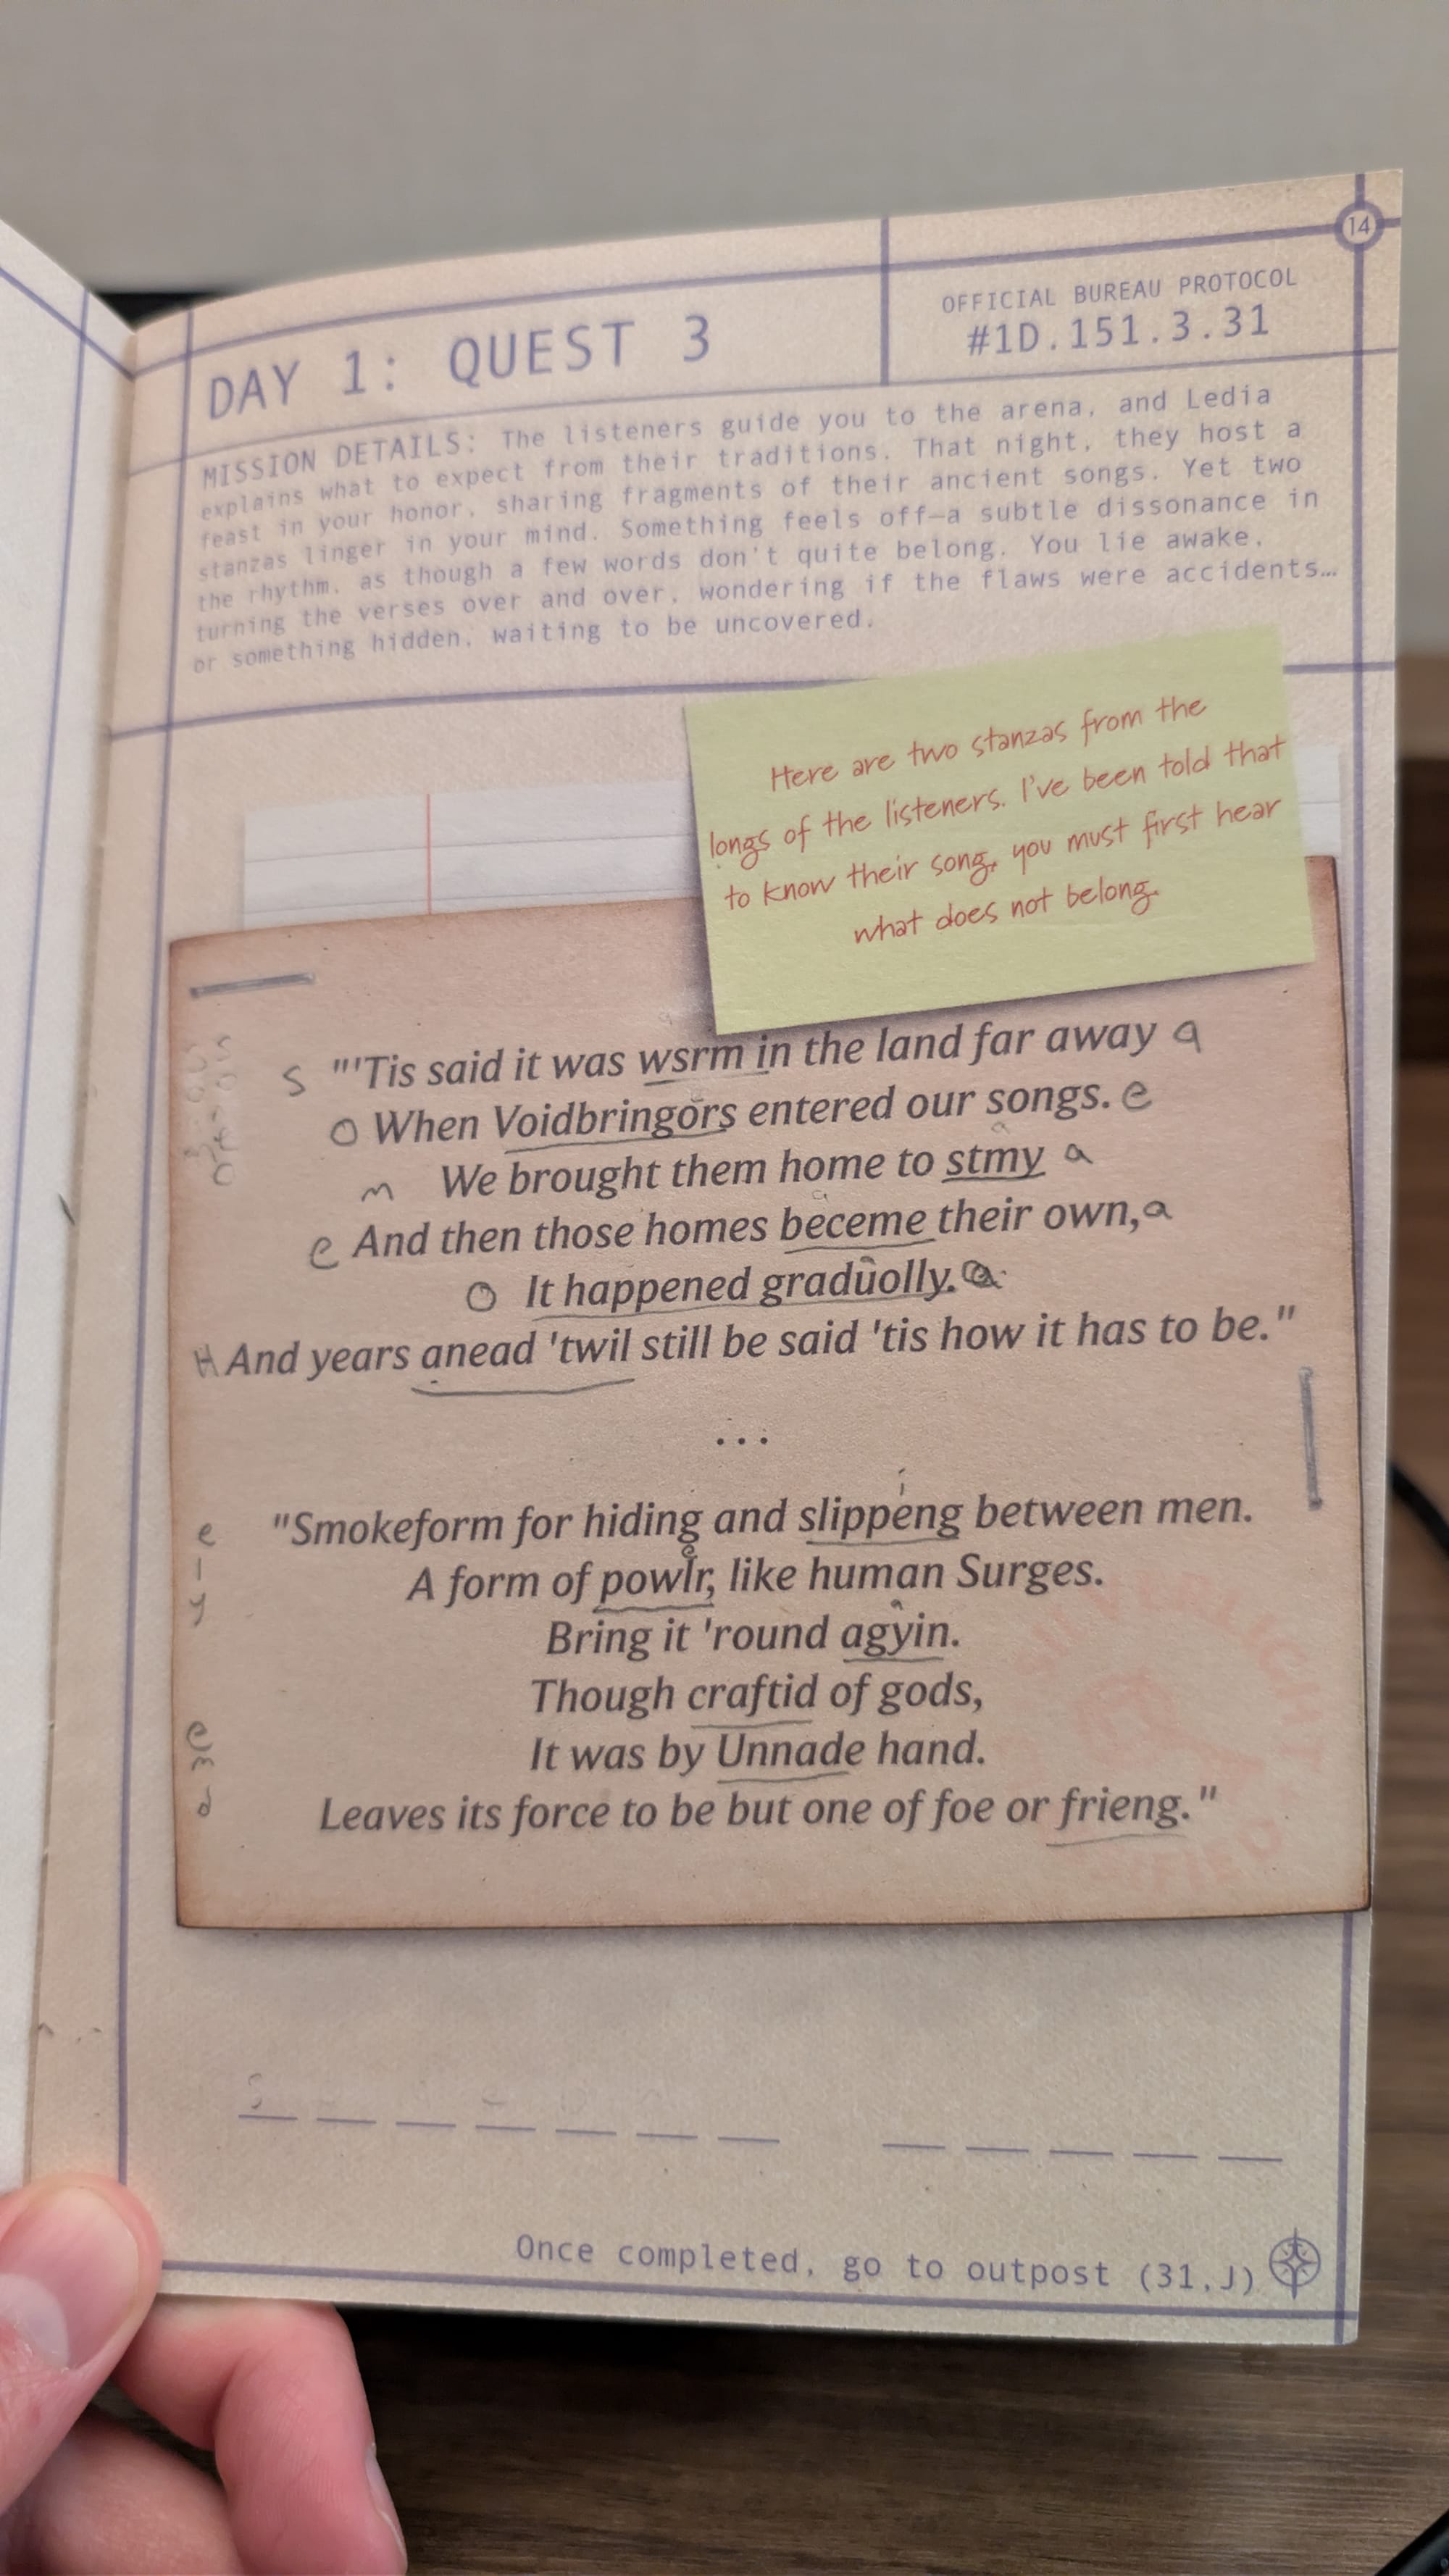 14
DAY 1: QUEST 3
OFFICIAL BUREAU PROTOCOL
#1D.151.3.31
MISSION DETAILS: The listeners guide you to the arena, and Ledia
explains what to expect from their traditions. That night, they host a
feast in your honor, sharing fragments of their ancient songs. Yet two
stanzas linger in your mind. Something feels off—a subtle dissonance in
the rhythm, as though a few words don't quite belong. You lie awake,
turning the verses over and over, wondering if the flaws were accidents…
or something hidden, waiting to be uncovered.
Here are two stanzas from the
longs of the listeners. I've been told that
to know their song, you must first hear
what does not belong.
s "'Tis said it was wsrm in the land far away a
o When Voidbringors entered our songs. e
m We brought them home to stmy a
e And then those homes beceme their own, a
o It happened graduolly. a
H And years anead 'twil still be said 'tis how it has to be."
...
e "Smokeform for hiding and slippeng between men.
i
l A form of powlr, like human Surges.
e
y Bring it 'round agyin.
a
Though craftid of gods,
e It was by Unnade hand.
m
d Leaves its force to be but one of foe or frieng."
S
Once completed, go to outpost (31,J)